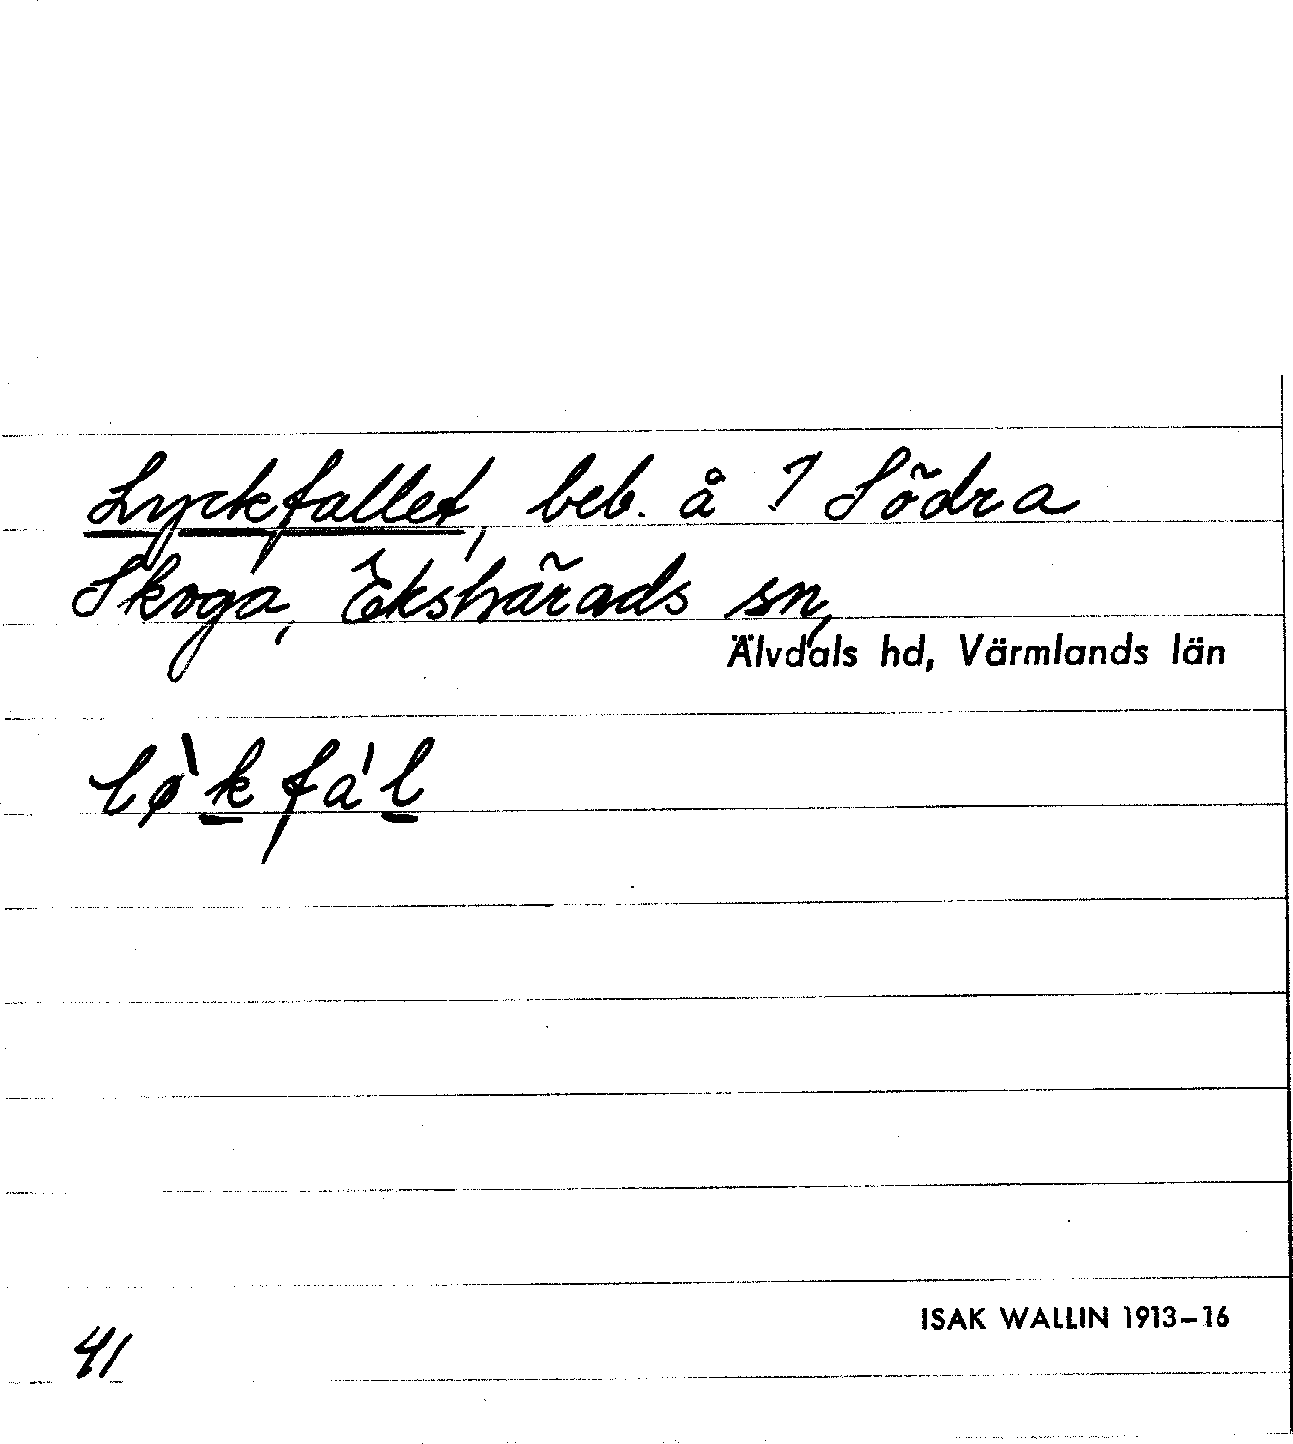 Lyckfallet, beb. å 7 Södra
Skoga, Ekshärads sn,
Älvdals hd, Värmlands län
lø̀k fál
ISAK WALLIN 1913–16
41